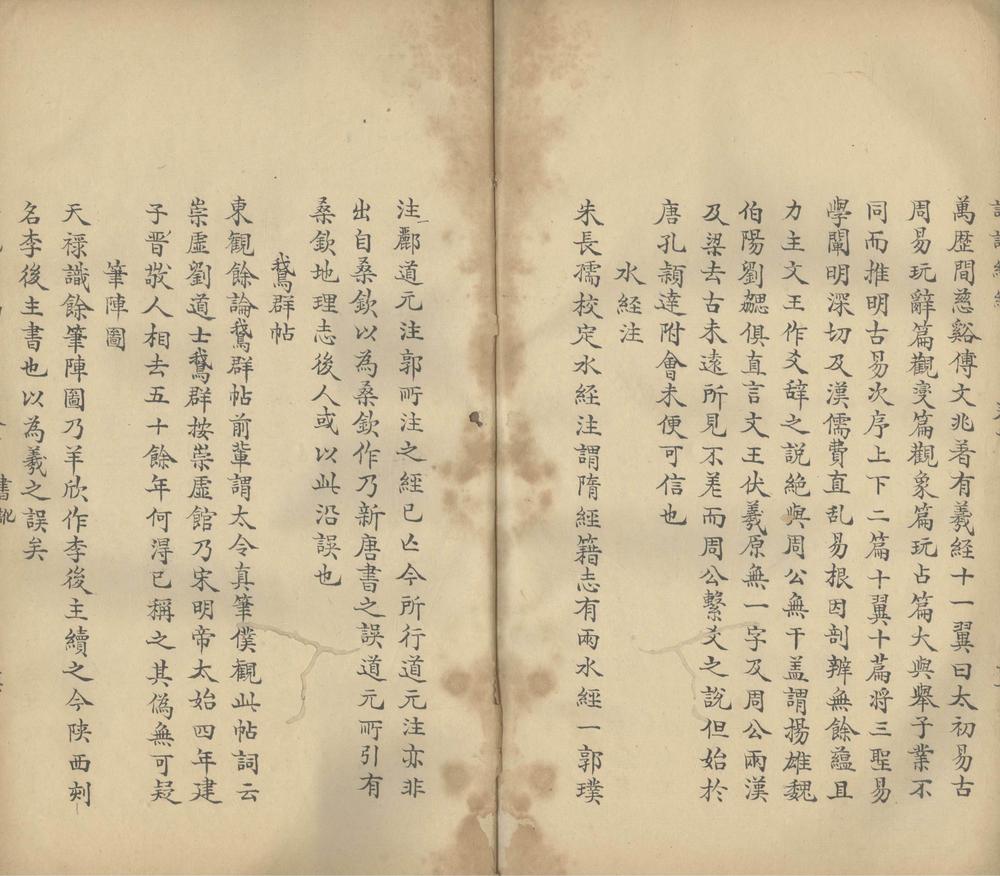 萬歴間慈谿傅文兆著有羲經十一翼曰太初易古
周易玩辭篇觀變篇觀象篇玩占篇大與舉子業不
同而推明古易次序上下二篇十翼十篇将三聖易
學闡明深切及漢儒費直乱易根因剖辨無餘蘊且
力主文王作爻辞之説絶與周公無干盖謂揚雄魏
伯陽劉勰俱直言文王伏羲原無一字及周公兩漢
及梁去古未遠所見不差而周公繫爻之説但始於
唐孔穎達附會未便可信也
水經注
朱長孺校定水經注謂隋經籍志有兩水經一郭璞
注一酈道元注郭所注之經已亡今所行道元注亦非
出自桑欽以為桑欽作乃新唐書之誤道元所引有
桑欽地理志後人或以此沿誤也
鵞群帖
東觀餘論鵞群帖前輩謂太令真筆僕觀此帖詞云
崇虛劉道士鵞群按崇虛館乃宋明帝太始四年建
子晋敬人相去五十餘年何得已稱之其偽無可疑
筆陣圖
天禄識餘筆陣圖乃羊欣作李後主續之今陕西刻
名李後主書也以為羲之誤矣